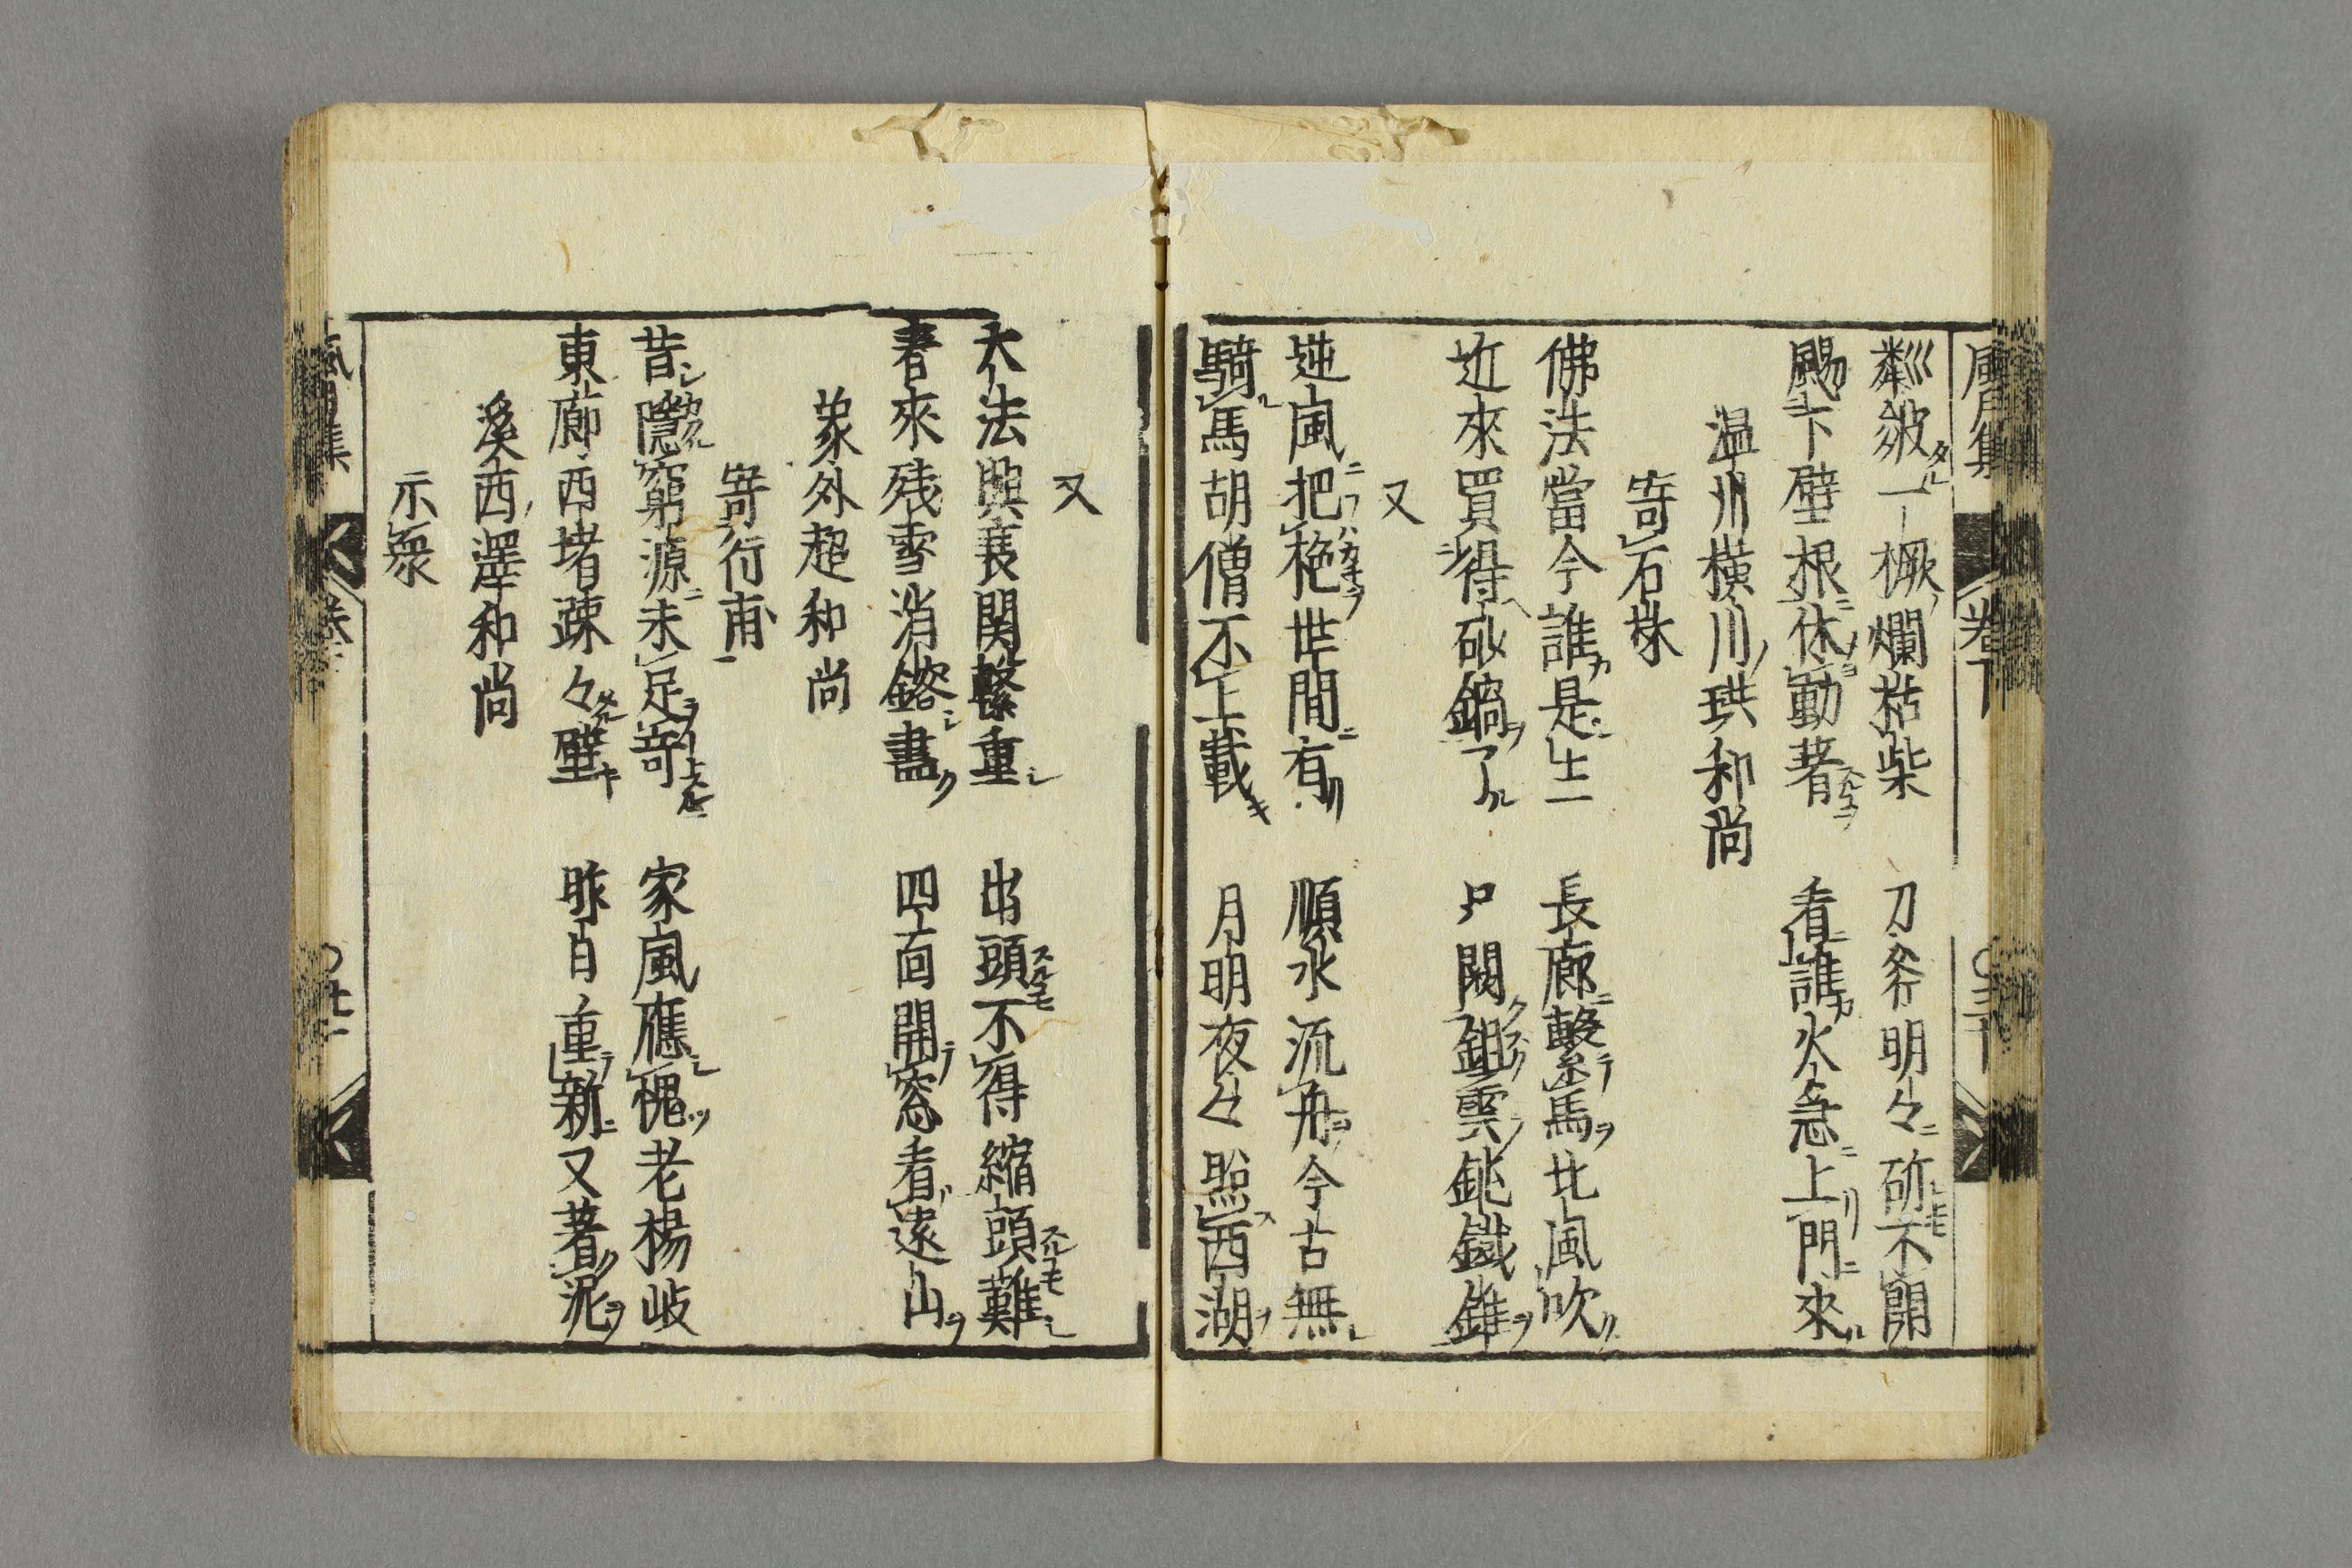 粼皴一橛爛枯柴　刀斧明々斫不開
颺下壁根休動著　看誰火急上門來
温州横川珙和尚
寄石林
佛法當今誰是主　長廊繫馬北風吹
近來買得砂鍋了　只闕鉏雲鈍鐵錐
又
逆風把柁世間有　順水流舟今古無
騎馬胡僧不上載　月明夜々照西湖
又
大法興衰関繫重　出頭不得縮頭難
春來残雪消鎔盡　四面開窓看遠山
象外超和尚
寄行甫
昔隠窮源未足竒　家風應愧老楊岐
東廊西堵疎々壁　昨日重新又著泥
溪西澤和尚
示衆